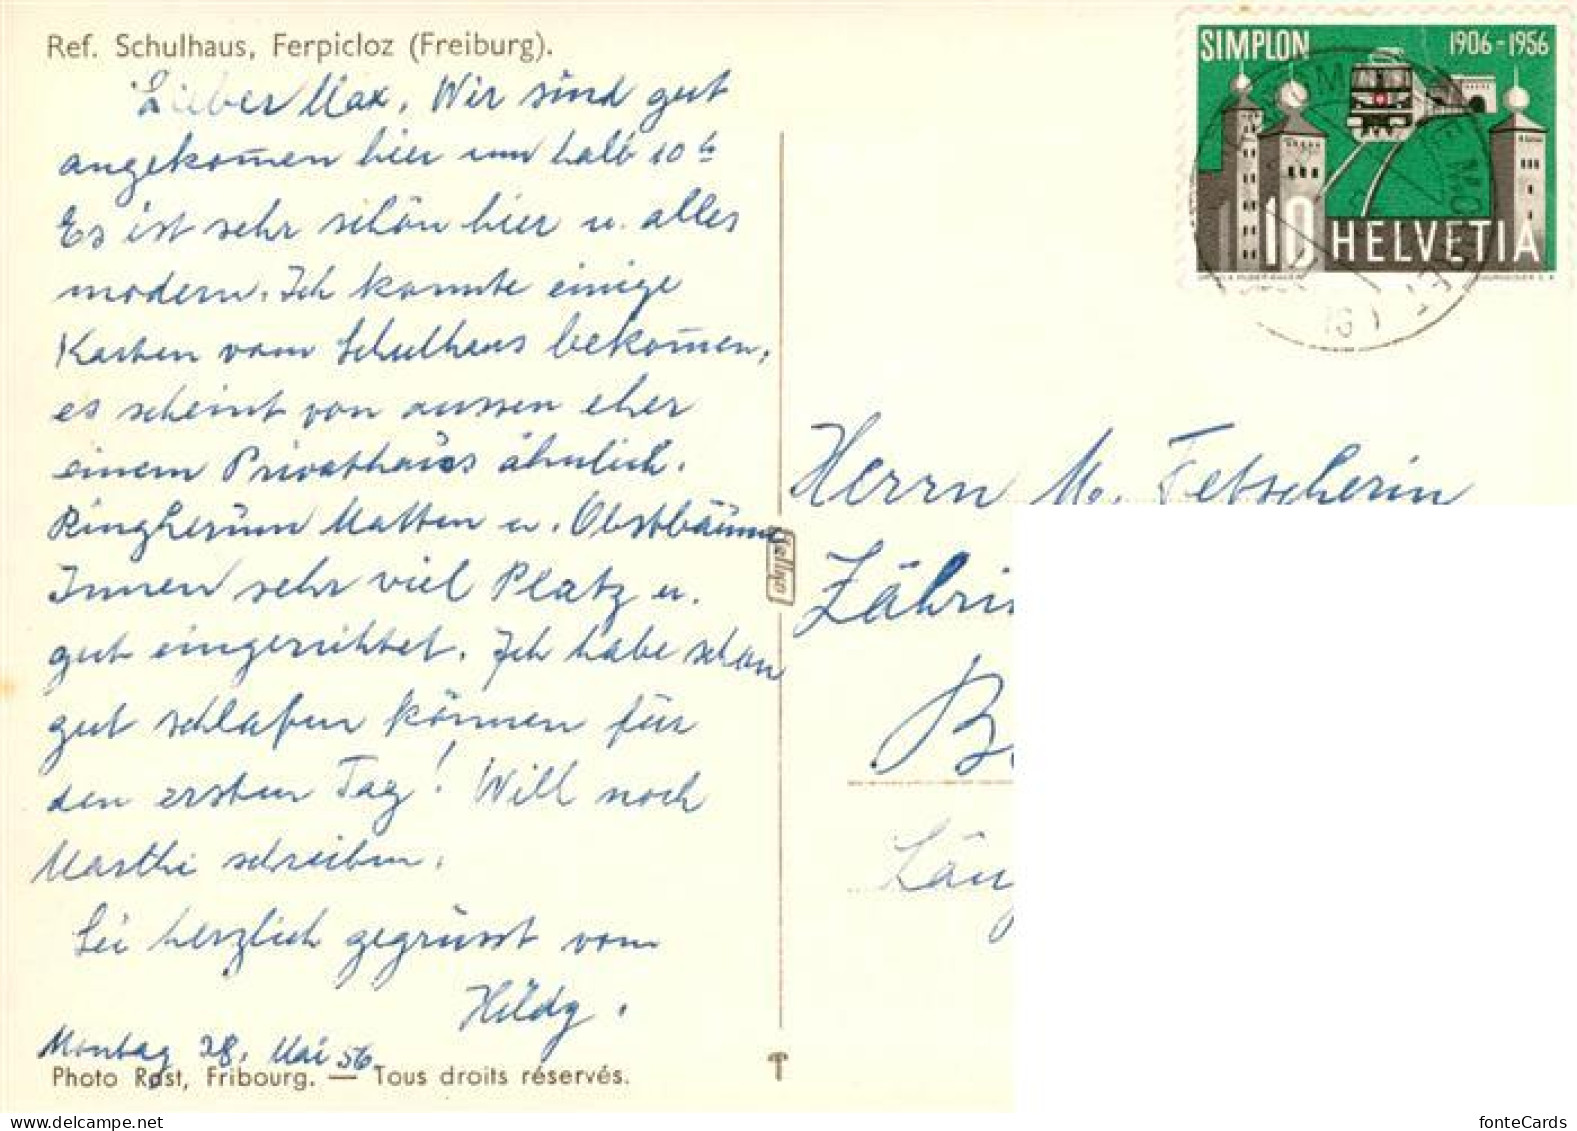 Ref. Schulhaus, Ferpicloz (Freiburg).
Lieber Max, Wir sind gut
angekom̄en hier um halb 10 h
Es ist sehr schön hier u. alles
modern. Ich konnte einige
Karten vom Schulhaus bekom̄en,
es scheint von aussen eher
einem Privathaus ähnlich.
Ringherum Matten u. Obstbäume
Innen sehr viel Platz u.
gut eingerichtet. Ich habe schon
gut schlafen können für
den ersten Tag! Will noch
Marthi schreiben.
Sei herzlich gegrüsst vom
Hildy.
Montag 28. Mai 56
Photo Rast, Fribourg. — Tous droits réservés.
Jellyco
SIMPLON 1906-1956
10 HELVETIA
Herrn M. Fetscherin
Zähri
B
Läng
fonteCards